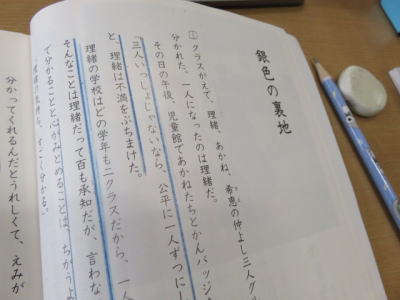 銀色の裏地
1 クラスがえで、理緒、あかね、希恵の仲よし三人グ
分かれた。一人になったのは理緒だ。
その日の午後、児童館であかねたちとかんバッジ
「三人いっしょじゃないなら、公平に一人ずつにし
と、理緒は不満をぶちまけた。
理緒の学校はどの学年も二クラスだから、一人
そんなことは理緒だって百も承知だが、言わな
で分かることと心がみとめることは、ちがうよ
すごく分かる。
分かってくれるんだとうれしくて、えみが